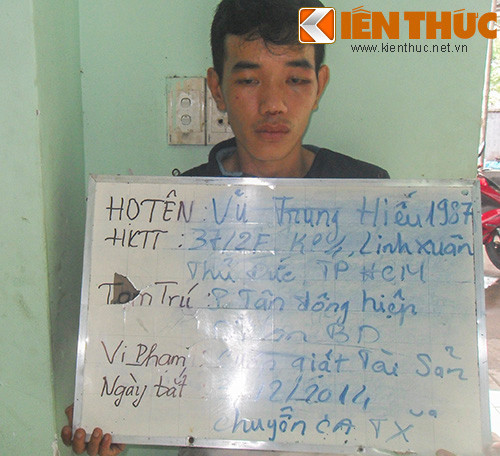 KIẾN THỨC
www.kienthuc.net.vn
HỌTÊN : Vũ Trung Hiếu 1987
HKTT : 37/2F, Linh xuân
Thủ Đức, TP HCM
Tạm Trú : P. Tân đông hiệp
BD
Vi Phạm giật Tài Sản
Ngày bắt 12/2014
chuyển CA TX